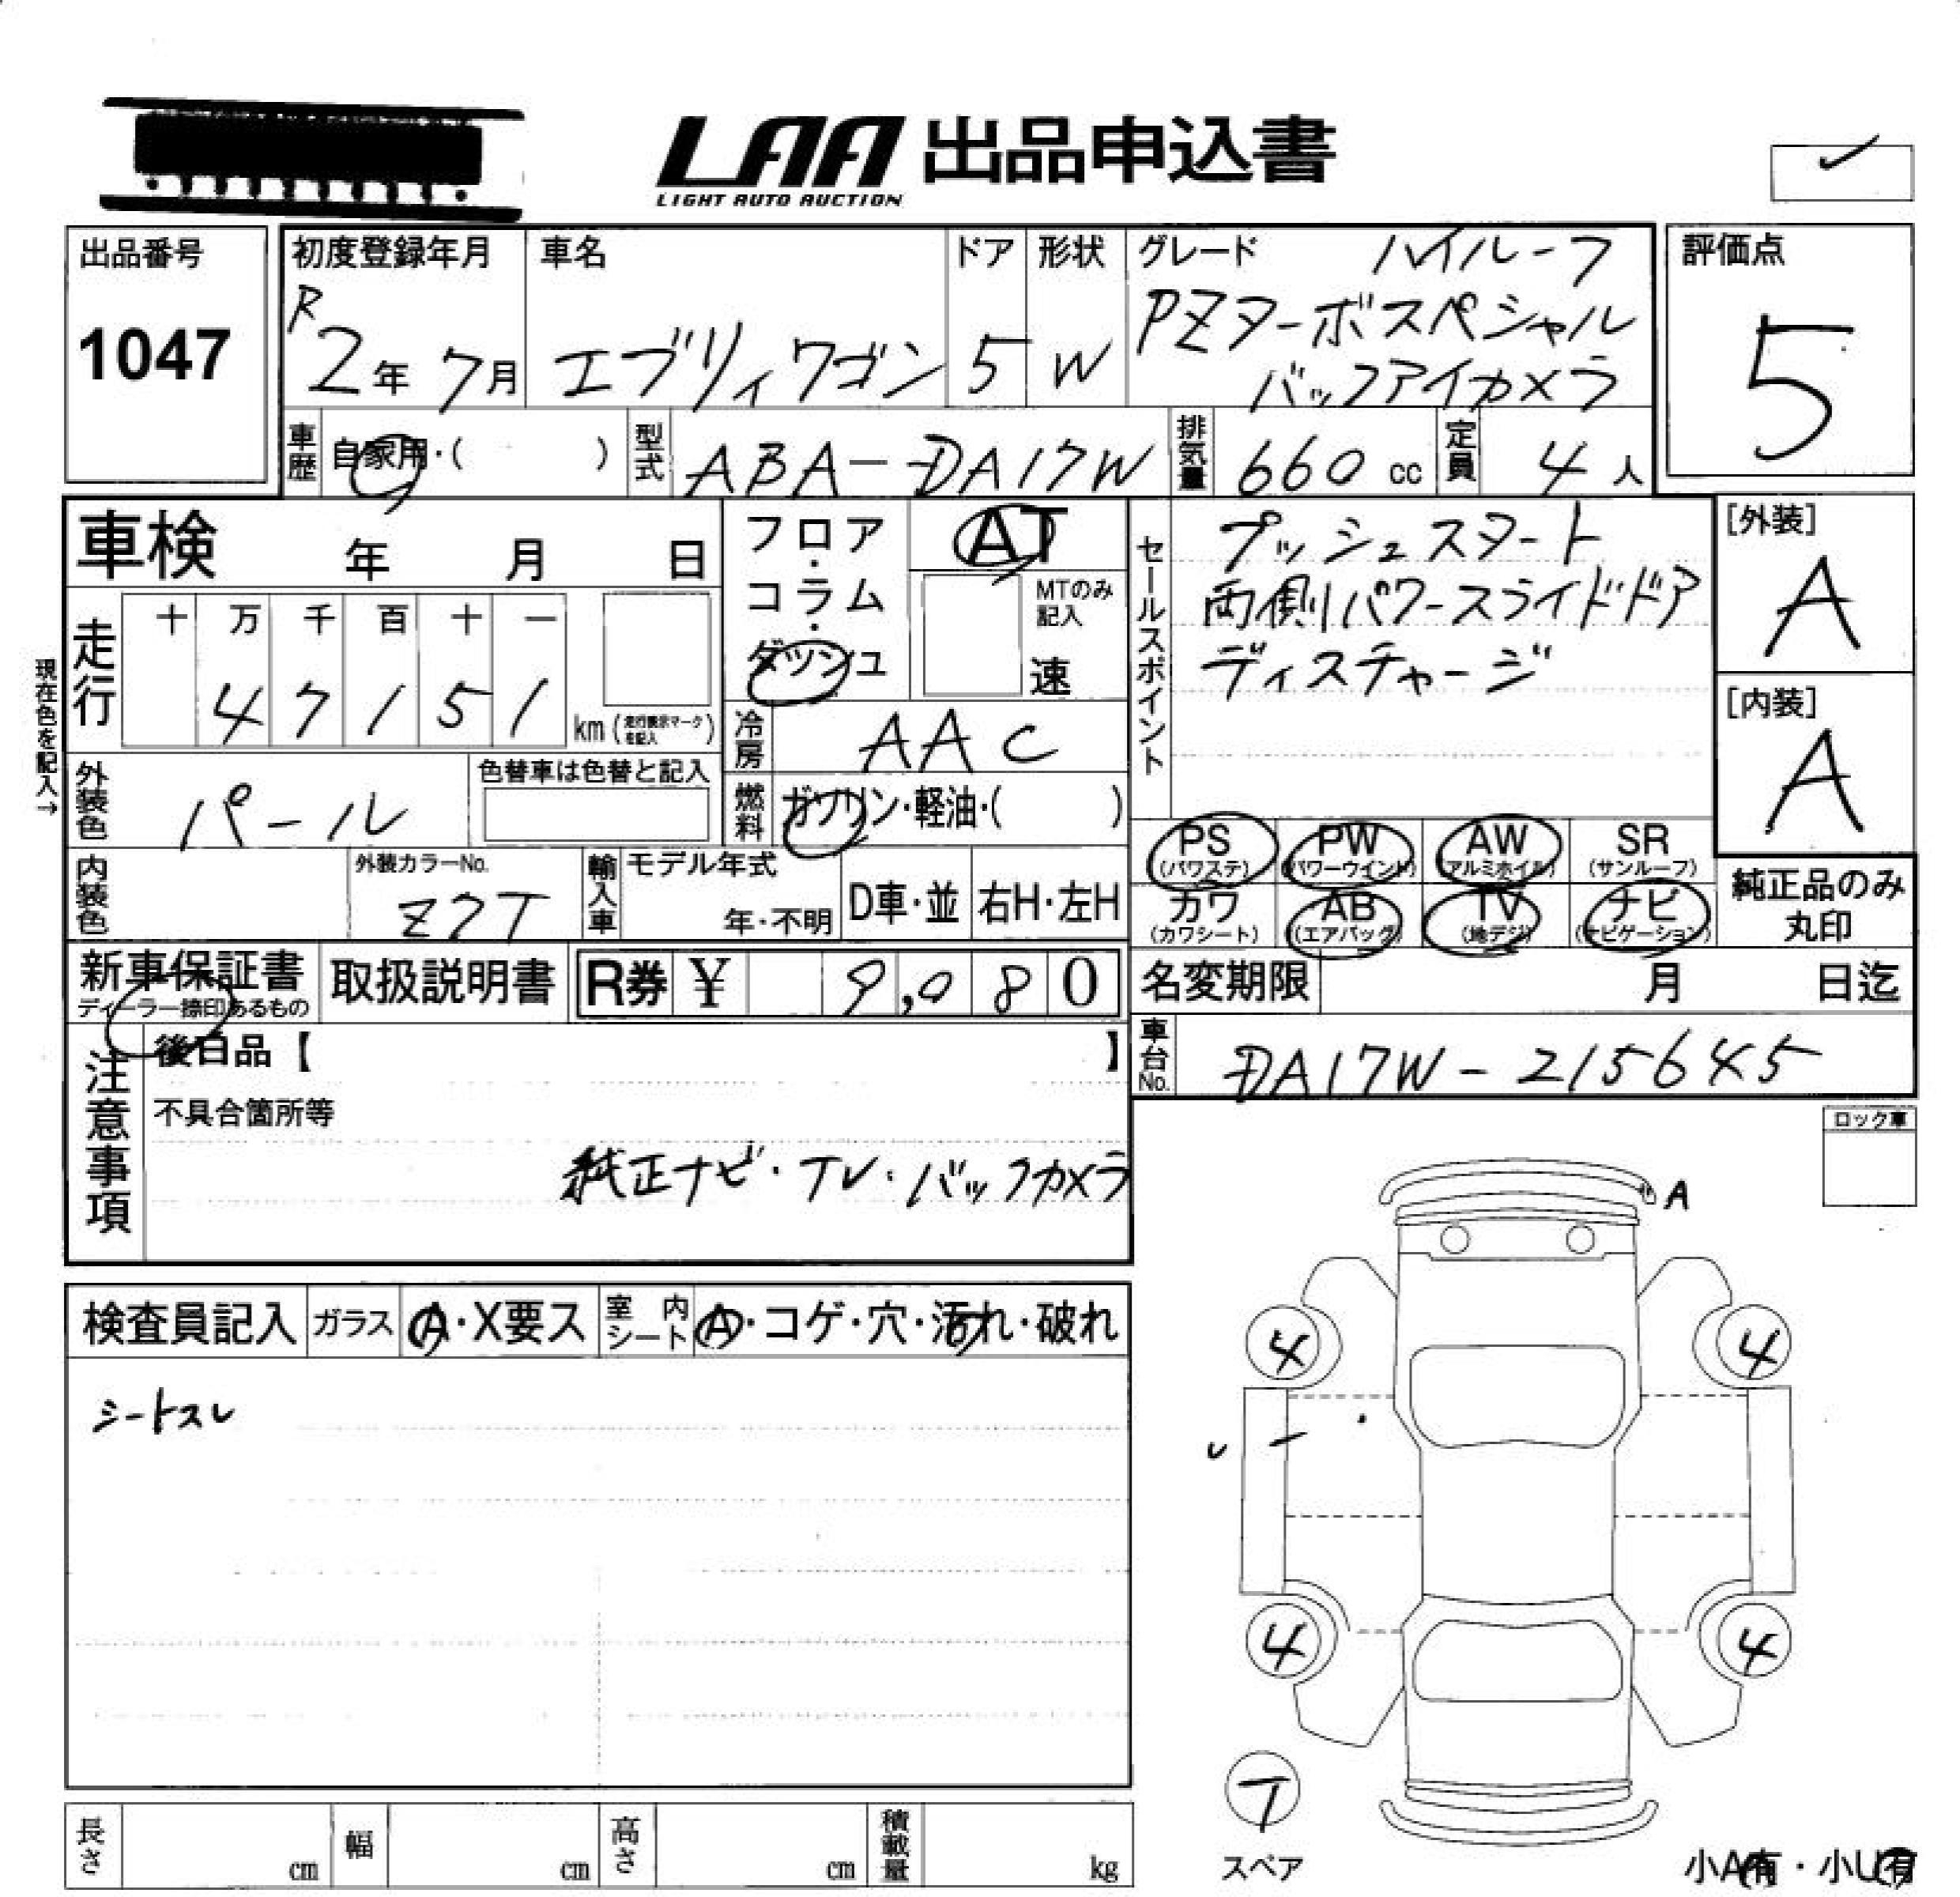 LAA 出品申込書
LIGHT AUTO AUCTION
出品番号
1047
初度登録年月
R
2年 7月
車名
エブリィワゴン
ドア
5
形状
W
グレード ハイルーフ
PZターボスペシャル
バックアイカメラ
評価点
5
車歴 自家用・( )
型式 ABA-DA17W
排気量 660 cc
定員 4 人
車検 年 月 日
フロア・コラム・ダッシュ
AT
MTのみ記入
速
セールスポイント
プッシュスタート
両側パワースライドドア
ディスチャージ
[外装]
A
[内装]
A
現在色を記入→
走行 十 万 千 百 十 一
4 7 1 5 1
km (走行表示マークを記入)
冷房 AAC
外装色 パール
色替車は色替と記入
燃料 ガソリン・軽油・( )
PS (パワステ) PW (パワーウインド) AW (アルミホイル) SR (サンルーフ)
カワ (カワシート) AB (エアバッグ) TV (地デジ) ナビ (ナビゲーション)
純正品のみ
丸印
内装色
外装カラーNo.
Z7T
輸入車 モデル年式
年・不明
D車・並
右H・左H
新車保証書
ディーラー捺印あるもの
取扱説明書
R券 ¥ 9,080
名変期限 月 日迄
車台No. DA17W-215645
注意事項
後日品【 】
不具合箇所等
純正ナビ・TV・バックカメラ
ロック車
A
検査員記入 ガラス A・X要ス 室内シート A・コゲ・穴・汚れ・破れ
シートスレ
4 4
4 4
T
スペア
長さ cm 幅 cm 高さ cm 積載量 kg
小A有・小U有